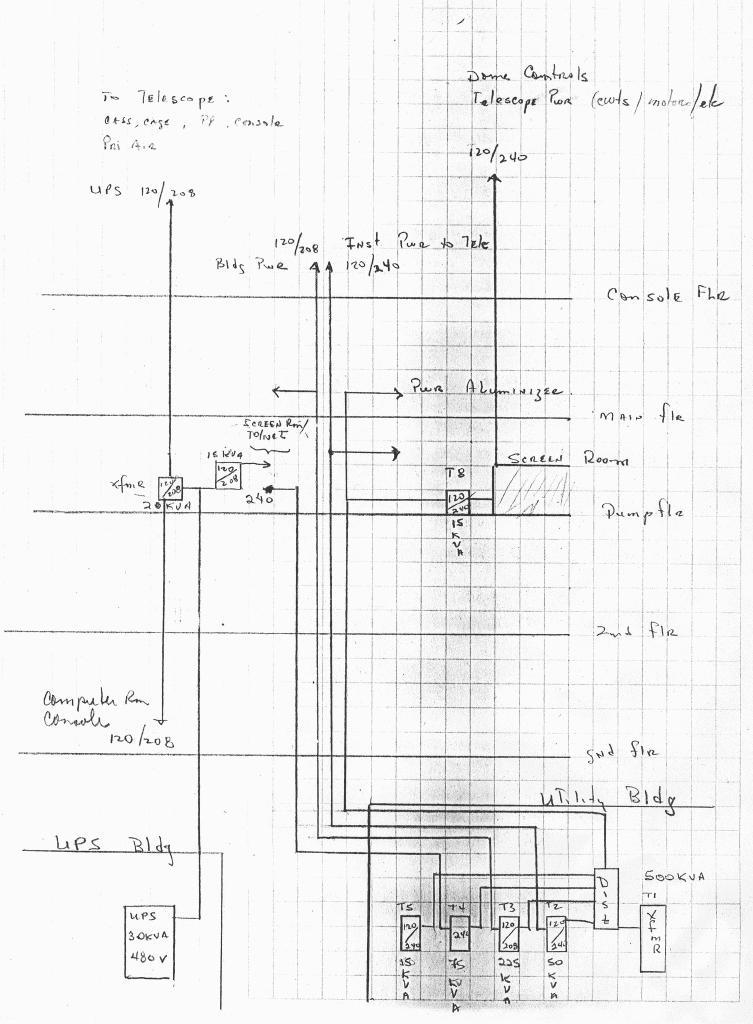 Dome Controls
Telescope Pwr
To Telescope:
Cass, cage, PF, console
Pri Air
120/240
UPS 120/208
120/208
Inst Pwr to Tele
Bldg Pwr
120/240
Console Flr
Pwr Aluminizer
Main flr
Screen Rm/
15 KVA
Screen Room
T8
xfmr
120/208
120/208
240
20 KVA
120/240
15 KVA
Pump flr
2nd flr
Computer Rm
Console
120/208
gnd flr
Utility Bldg
UPS Bldg
Dist
500KVA
T1
XFMR
T5
T4
T3
T2
120/240
240
120/208
120/240
UPS
30KVA
480V
75 KVA
225 KVA
50 KVA